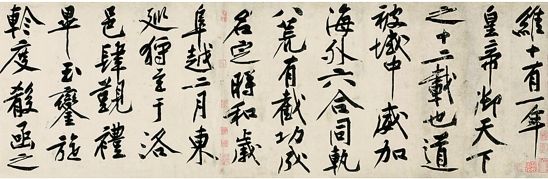 維十有一年
皇帝御天下
之十二載也道
被域中威加
海外六合同軌
八荒有截功成
名定時和歲
阜越二月東
巡狩至于洛
邑肆覲禮
畢玉鑾旋
軫度殽函之